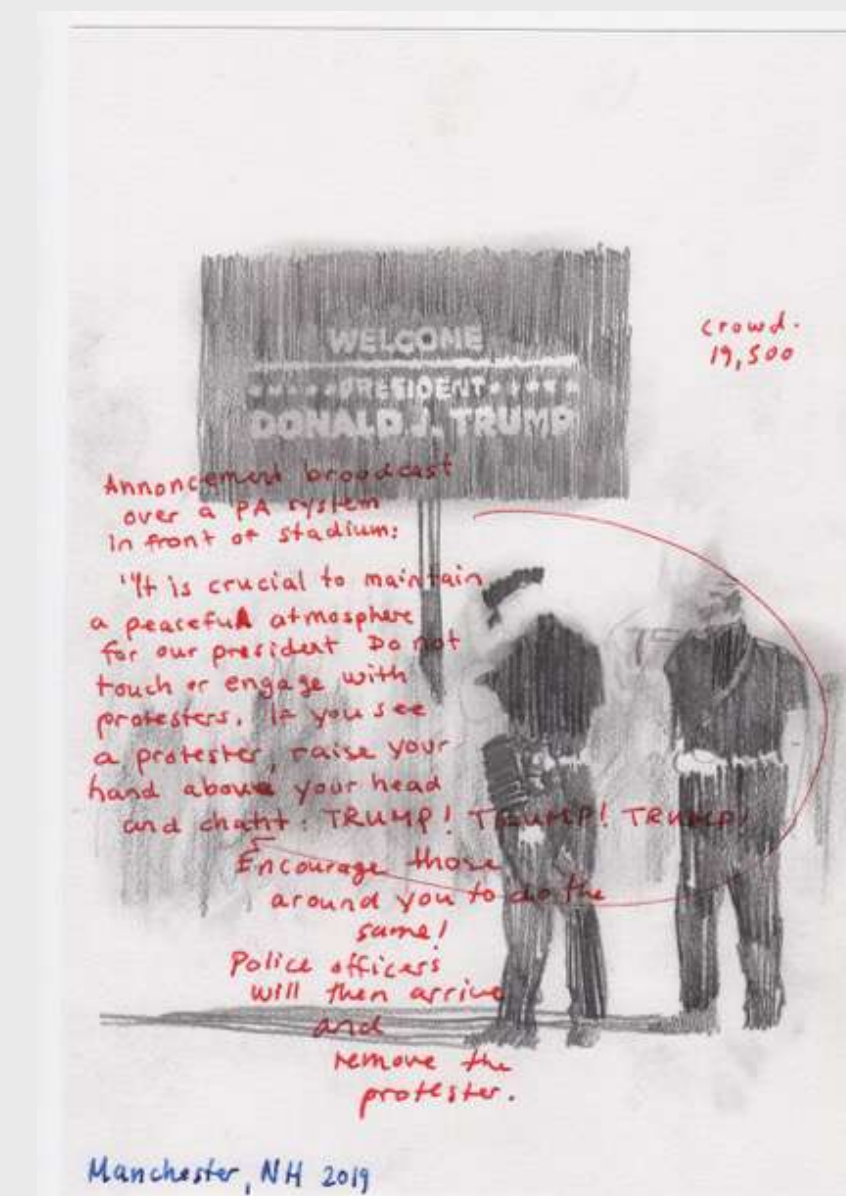 WELCOME
PRESIDENT
DONALD J. TRUMP
crowd.
19,500
Annoncement broadcast
over a PA system
in front of stadium:
"It is crucial to maintain
a peaceful atmosphere
for our president Do not
touch or engage with
protesters. If you see
a protester, raise your
hand above your head
and chant: TRUMP! TRUMP! TRUMP!
Encourage those
around you to do the
same!
Police officers
will then arrive
and
remove the
protester.
Manchester, NH 2019